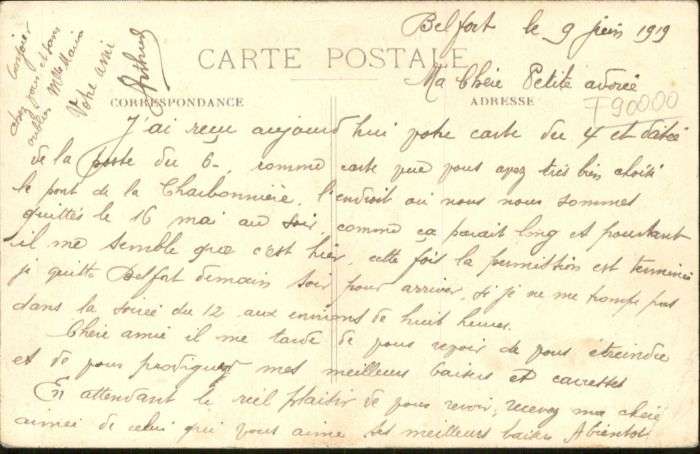 Belfort le 9 juin 1919
CARTE POSTALE
Ma Chère Petite adorée
CORRESPONDANCE
ADRESSE
T90000
J'ai reçu aujourd'hui votre carte du 4 et datée
de la poste du 6, comme carte que vous avez très bien choisi
le pont de la Charbonnière, l'endroit où nous nous sommes
quittés le 16 mai au soir, comme ça parait long et pourtant
il me semble que c'est hier, cette fois la permission est terminée
je quitte Belfort demain soir pour arriver, si je ne me trompe pas
dans la soirée du 12 aux environs de huit heures.
Chère amie il me tarde de vous revoir de vous étreindre
et de vous prodiguer mes meilleurs baisers et caresses
En attendant le réel plaisir de vous revoir, recevez ma chère
aimée de celui qui vous aime ses meilleurs baisers A bientôt
bonjour
chez vous et sans
oublier Mlle Maria
Votre ami
Arthur